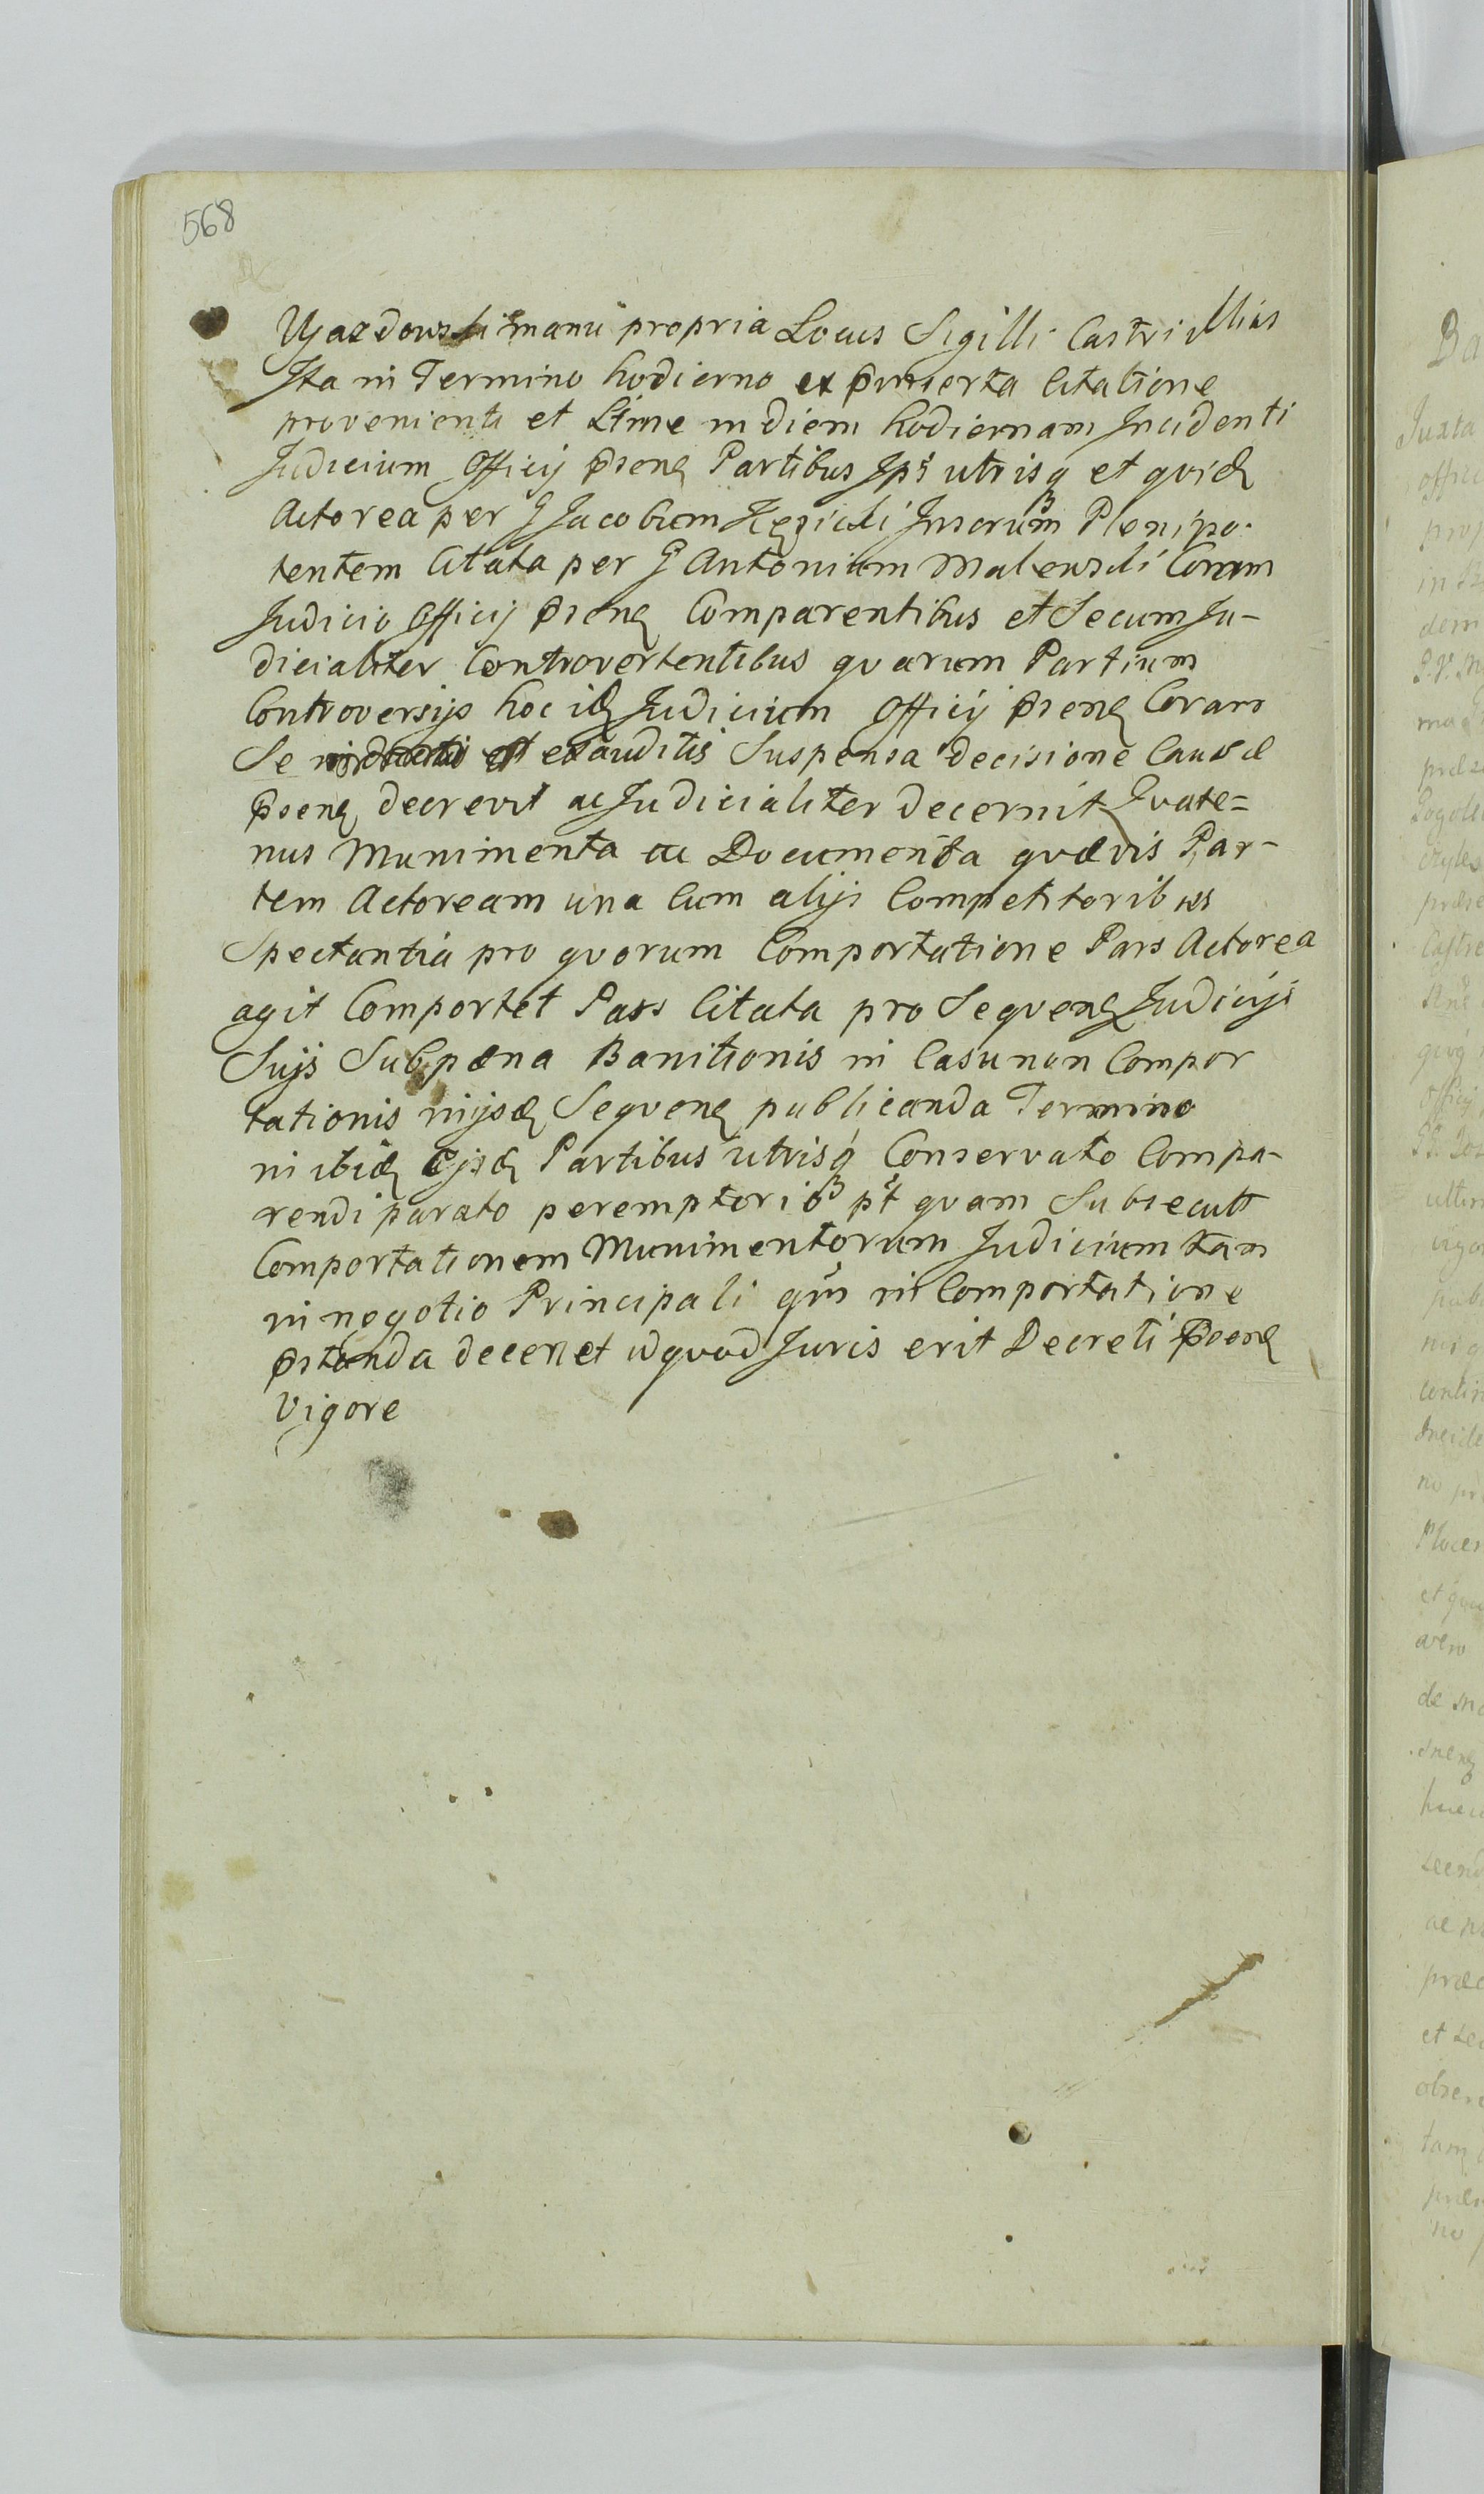 568
Ujazdowski manu propria Locus Sigilli Castri illius
Ita in Termino hodierno ex p̄inserta Citatione
provenienti et Ltime in diem hodiernam Incidenti
Judicium Officij p̄sens Partibus Ipś utrisq et qvid
Actorea per G Jacobum Insorum Plenipo-
tentem Citata per G Antonium Malewski Coram
Judicio Officij p̄sens Comparentibus et Secum Ju-
dicialiter Controvertentibus qvarum Partium
Controversijs hoc id Judicium Officij p̄sens Coram
Se et exauditis Suspensa decisione Causæ
p̄sens decrevit ac Judicialiter decernit Qvate=
nus Munimenta ac Documenta qvævis Par-
tem Actoream una Cum alijs Competitoribus
Spectantia pro qvorum Comportatione Pars Actorea
agit Comportet Pars Citata pro Seqvens Judicijs
Sujs Sub pæna Banitionis in Casu non Compor
tationis inijsd Seqvens publicanda Termino
in ibid Ejsd Partibus utrisq Conservato Compa-
rendi parato peremptorio pt qvam Subsecutt
Comportationem Munimentorum Judicium tam
in negotio Principali qm in Comportatione
p̄standa decernet id qvod Juris erit Decreti p̄sens
Vigore